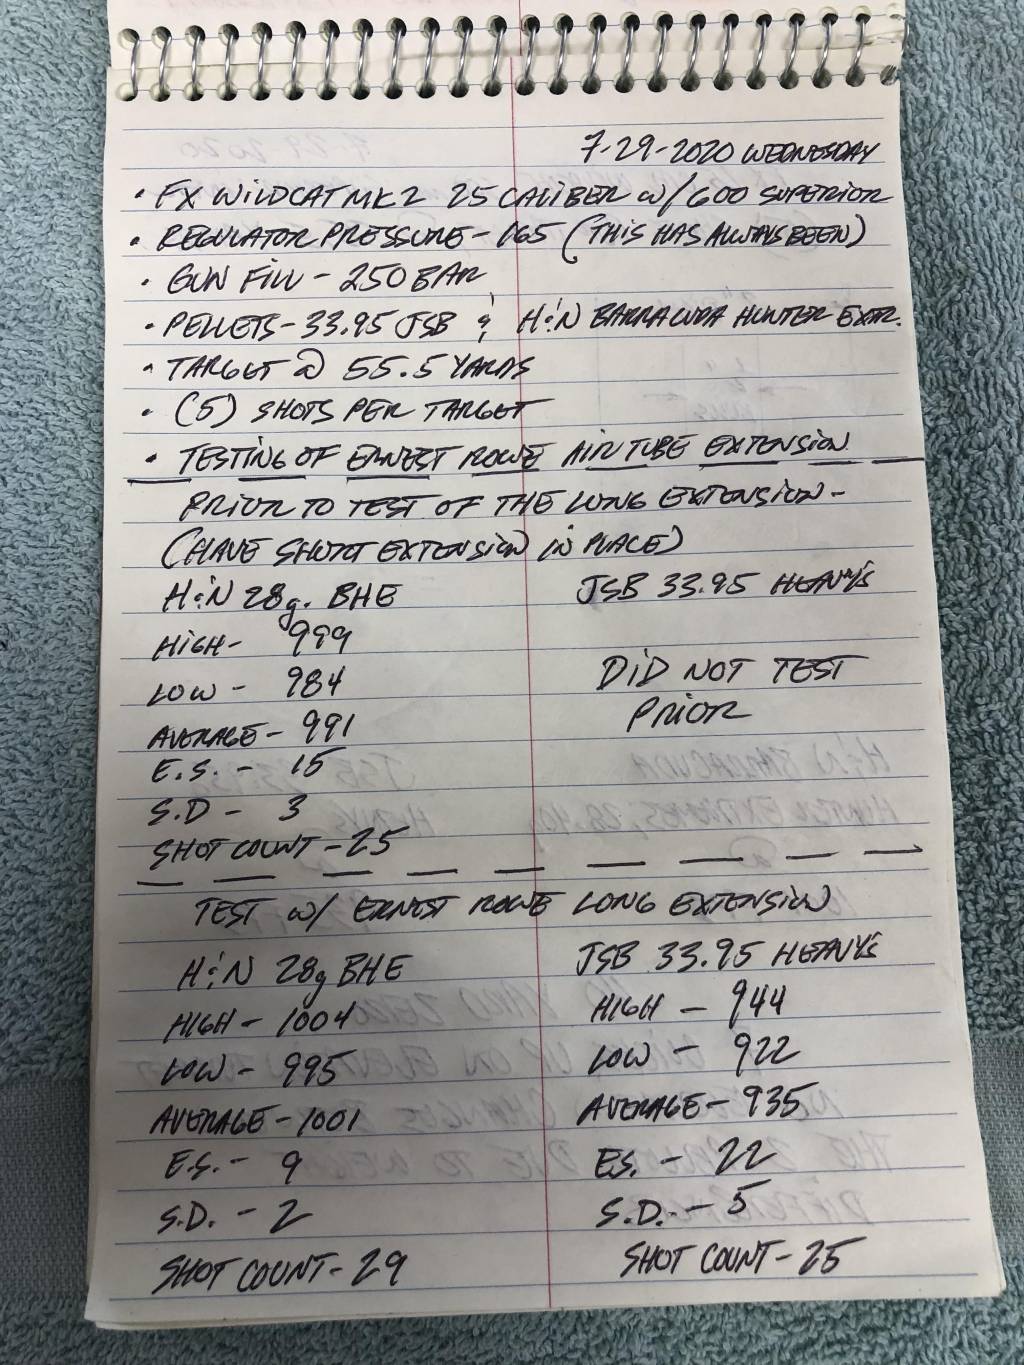 7-29-2020 WEDNESDAY
• FX WILDCAT MK2 25 CALIBER W/600 SUPERIOR
• REGULATOR PRESSURE - 165 (THIS HAS ALWAYS BEEN)
• GUN FILL - 250 BAR
• PELLETS - 33.95 JSB & H&N BARRACUDA HUNTER EXTR.
• TARGET @ 55.5 YARDS
• (5) SHOTS PER TARGET
• TESTING OF ERNEST ROWE AIR TUBE EXTENSION
PRIOR TO TEST OF THE LONG EXTENSION -
(HAVE SHORT EXTENSION IN PLACE)
H&N 28g. BHE JSB 33.95 HEAVY'S
HIGH - 999
LOW - 984 DID NOT TEST
AVERAGE - 991 PRIOR
E.S. - 15
S.D - 3
SHOT COUNT - 25
TEST W/ ERNEST ROWE LONG EXTENSION
H&N 28g BHE JSB 33.95 HEAVY'S
HIGH - 1004 HIGH - 944
LOW - 995 LOW - 922
AVERAGE - 1001 AVERAGE - 935
E.S. - 9 ES. - 22
S.D. - 2 S.D. - 5
SHOT COUNT - 29 SHOT COUNT - 25